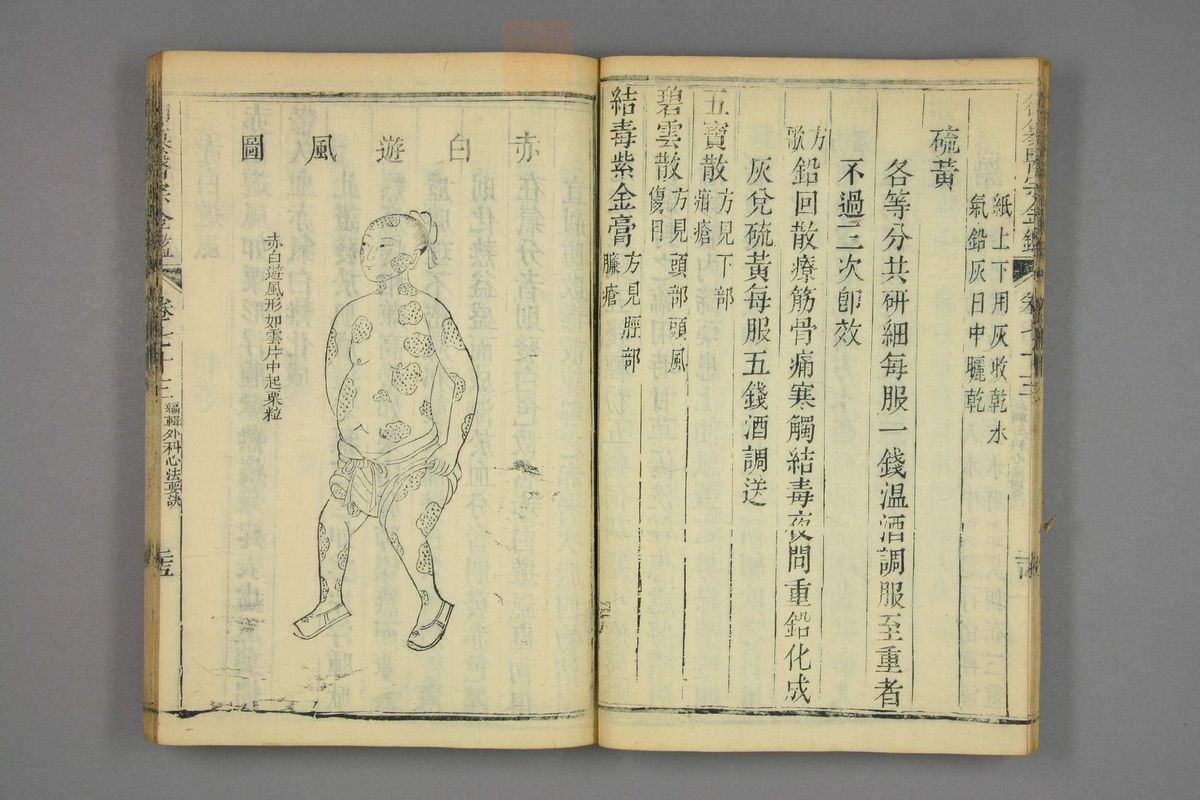 紙上下用灰收乾水
氣鉛灰日中曬乾
硫黃
各等分共研細每服一錢溫酒調服至重者
不過三次卽效
方歌
鉛回散療筋骨痛寒觸結毒夜間重鉛化成
灰兌硫黃每服五錢酒調送
五寶散方見下部疳瘡
碧雲散方見頭部頭風傷目
結毒紫金膏方見脛部臁瘡
赤白遊風圖
赤白遊風形如雲片中起粟粒
卷七十三
編輯外科心法要訣
二十五